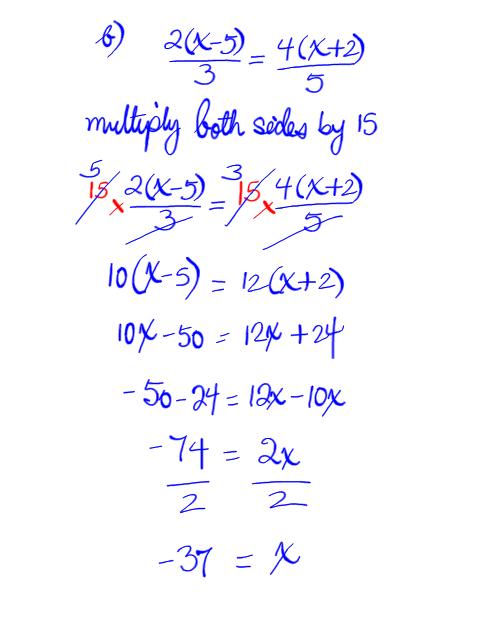 b) 2(x-5)/3 = 4(x+2)/5
multiply both sides by 15
5 15 x 2(x-5)/3 = 3 15 x 4(x+2)/5
10(x-5) = 12(x+2)
10x-50 = 12x+24
-50-24 = 12x-10x
-74/2 = 2x/2
-37 = x